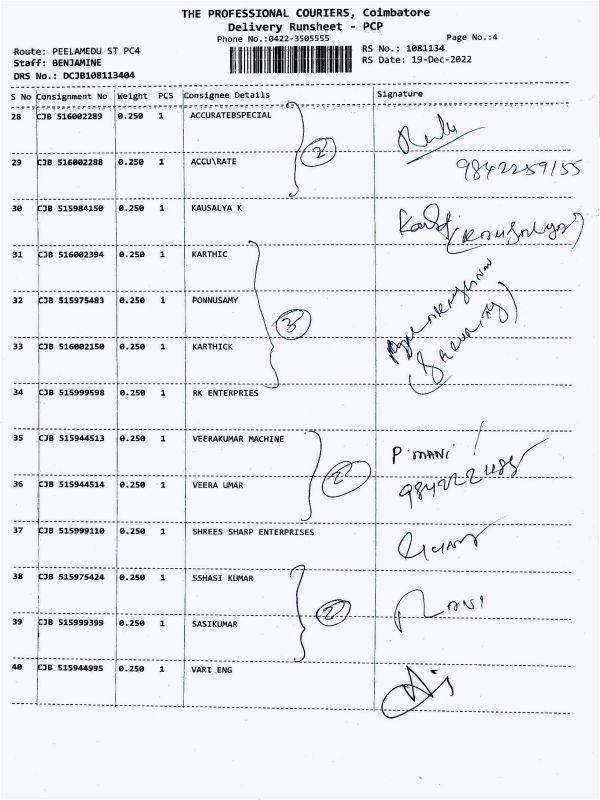 THE PROFESSIONAL COURIERS, Coimbatore
Delivery Runsheet - PCP
Phone No.:0422-3505555
Page No.:4
Route: PEELAMEDU ST PC4
RS No.: 1081134
Staff: BENJAMINE
RS Date: 19-Dec-2022
DRS No.: DCJB108113404
S No Consignment No Weight PCS Consignee Details Signature
28 CJB 516002289 0.250 1 ACCURATEBSPECIAL
2
29 CJB 516002288 0.250 1 ACCU\RATE
30 CJB 515984150 0.250 1 KAUSALYA K
31 CJB 516002394 0.250 1 KARTHIC
32 CJB 515975483 0.250 1 PONNUSAMY
3
33 CJB 516002150 0.250 1 KARTHICK
34 CJB 515999598 0.250 1 RK ENTERPRIES
35 CJB 515944513 0.250 1 VEERAKUMAR MACHINE
P. MANI
2
36 CJB 515944514 0.250 1 VEERA UMAR
37 CJB 515999110 0.250 1 SHREES SHARP ENTERPRISES
38 CJB 515975424 0.250 1 SSHASI KUMAR
2
Ravi
39 CJB 515999399 0.250 1 SASIKUMAR
40 CJB 515944995 0.250 1 VARI ENG